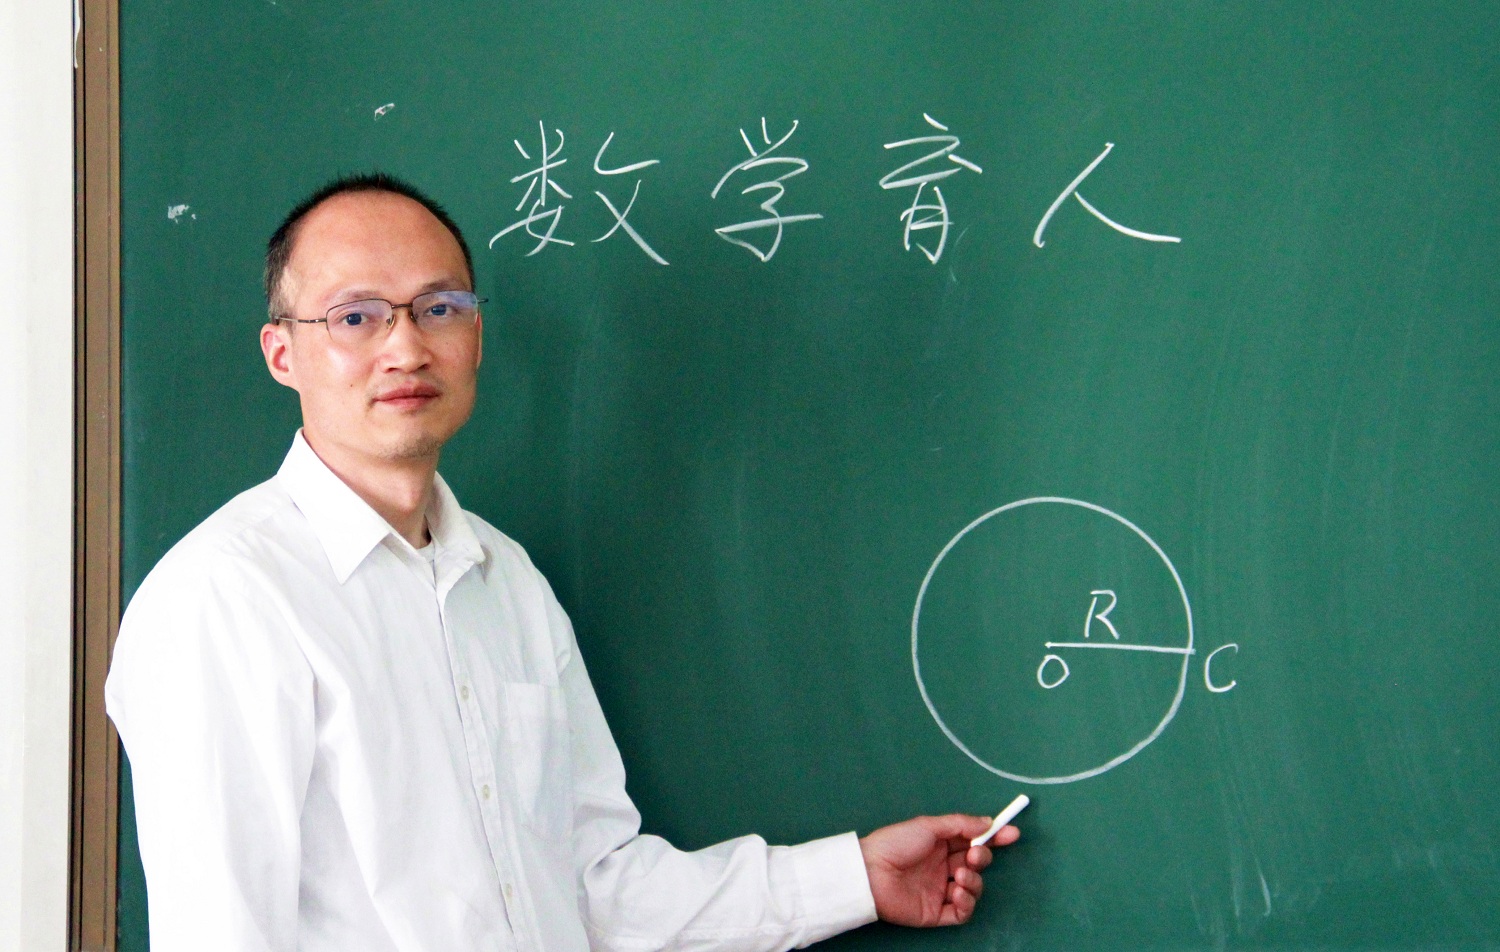 数学育人
R
O C